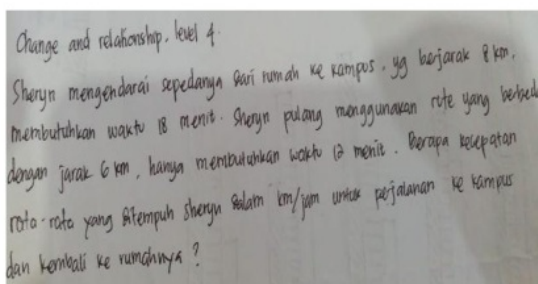 Change and relationship. level 4.
Sheryn mengendarai sepedanya dari rumah ke kampus. yg berjarak 8 km.
membutuhkan waktu 18 menit. Sheryn pulang menggunakan rute yang berbeda
dengan jarak 6 km, hanya membutuhkan waktu 12 menit. Berapa kecepatan
rata-rata yang ditempuh Sheryn dalam km/jam untuk perjalanan ke kampus
dan kembali ke rumahnya ?